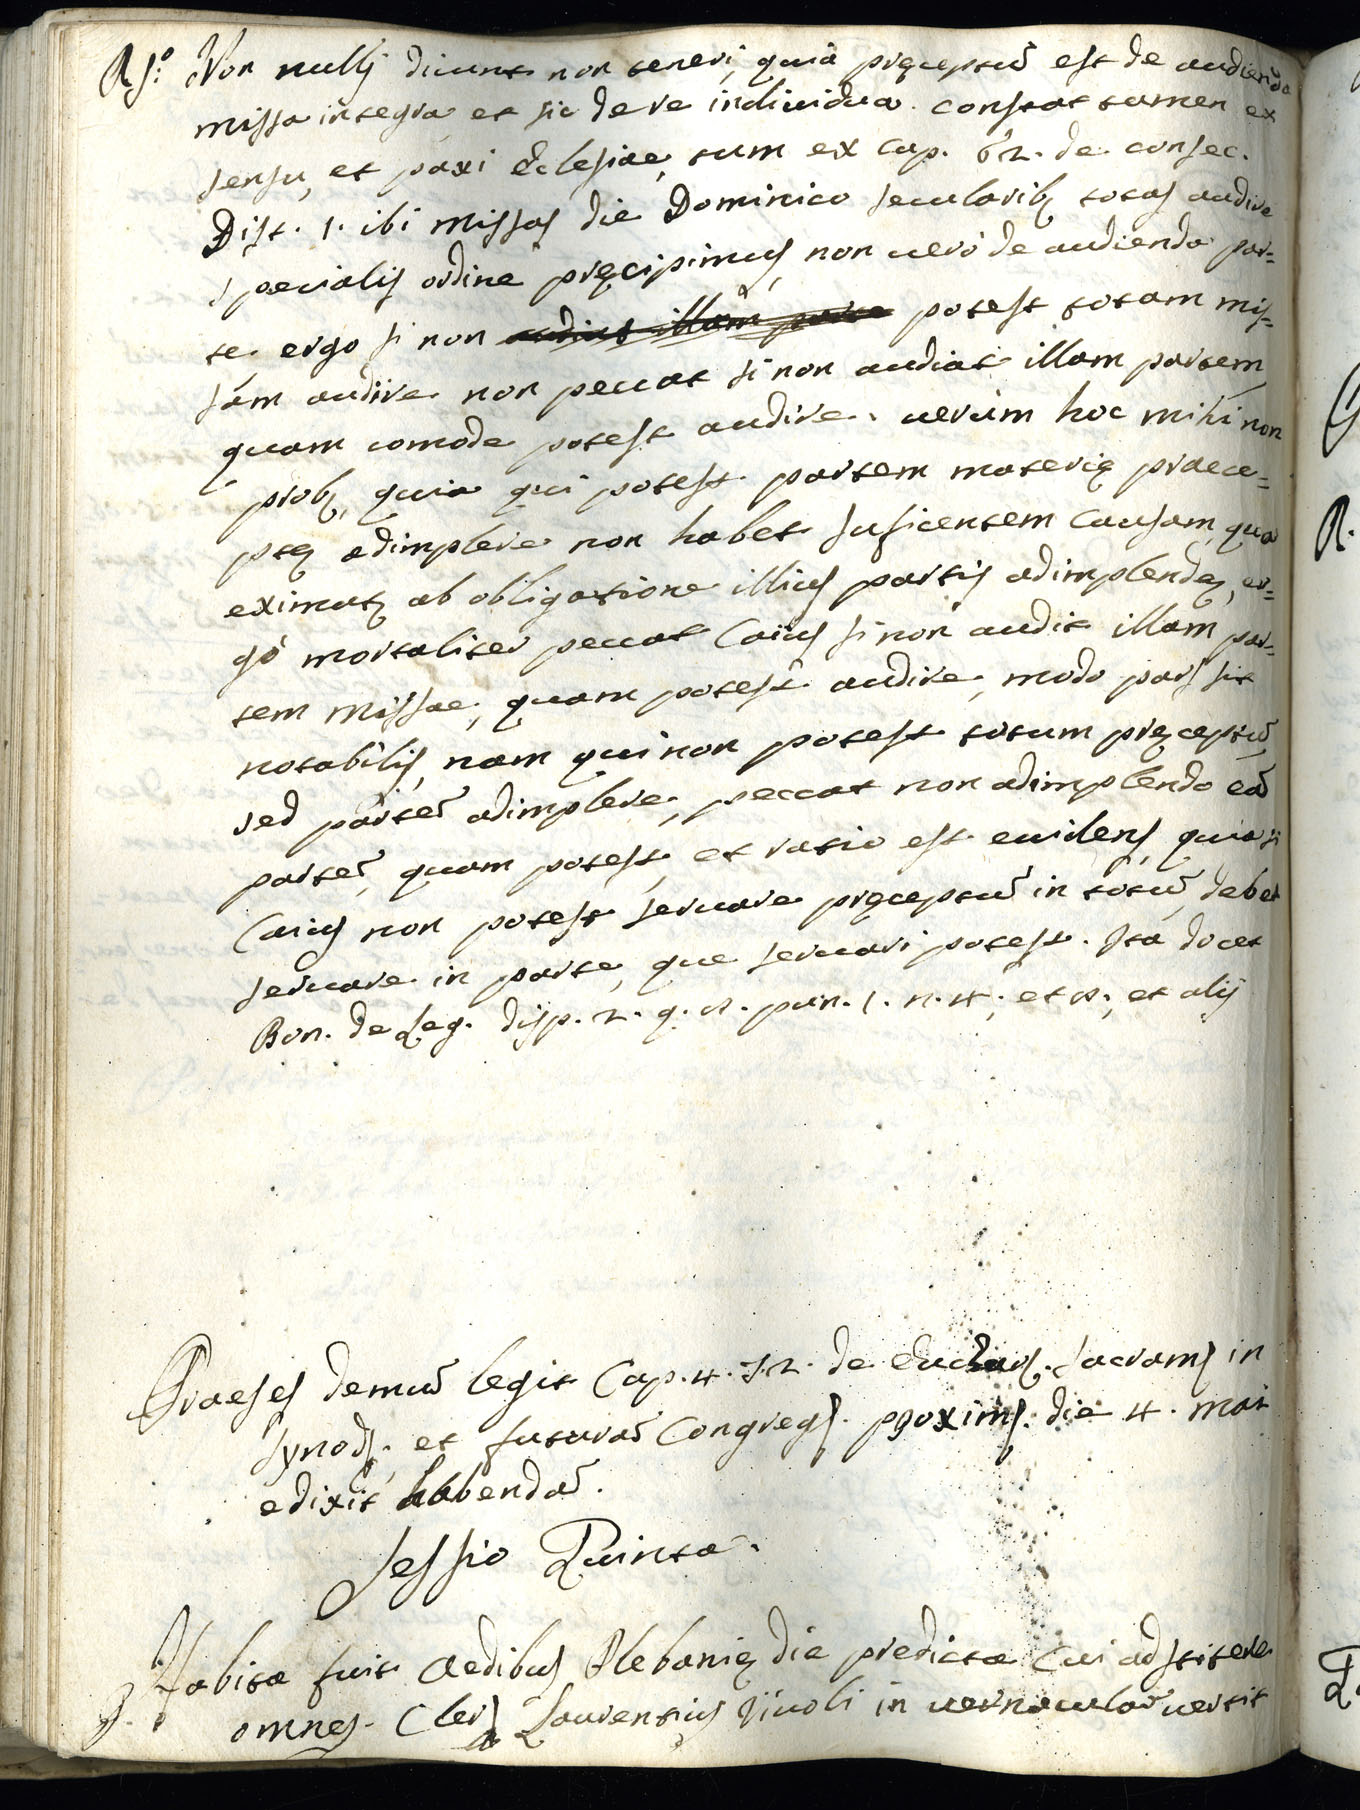 Rs.o Non nullj dicunt non teneri, quia pręceptū est de audienda
missa integra et sic de re individua. Constat tamen ex
sensu, et praxi Eclesiae, tum ex Cap. 62. de consec.
Dist. 1. ibi Missas die Dominico secularibꝫ totas audire
speciali ordine pręcipimus, non uero de audienda par=
te. ergo si non audiat illam parte potest totam mis=
sam audire non peccat si non audiat illam partem,
quam comode potest audire. uerum hoc mihi non
probꝫ, quia qui potest partem materię praece=
ptę adimplere non habet suficentem Causam, qua
eximatꝫ ab obligatione illius partis adimplendę, er=
gò mortaliter peccat Caius si non audit illam par=
tem Missae, quam potest audire, modo pars sit
notabilis, nam qui non potest totum pręceptū,
sed partē adimplere, peccat non adimplendo eā
partē, quam potest, et ratio est euidens, quia si
Caius non potest seruare pręceptū in totū, debet
seruare in parte, que seruari potest. Ita docet
Bon. de Leg. disp. 2. q. 8. pun. 1. n. 4. et 8., et alij
Praeses demū legit Cap. 4. T. 2. de Euchar. Sacram. in
Synod. et futurā Congreg. proxim. die 4. Mai
edixit habendā.
Sessio Quinta.
Habita fuit Aedibus Plebanię die predicta Cui adstitere
omnes. Cler. Laurentius Tiuoli in uernaculā uertit